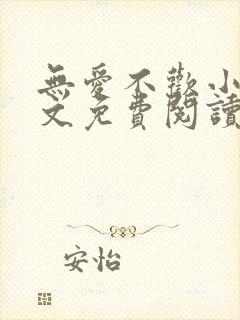 無愛不歡小
文免費閱讀
安怡